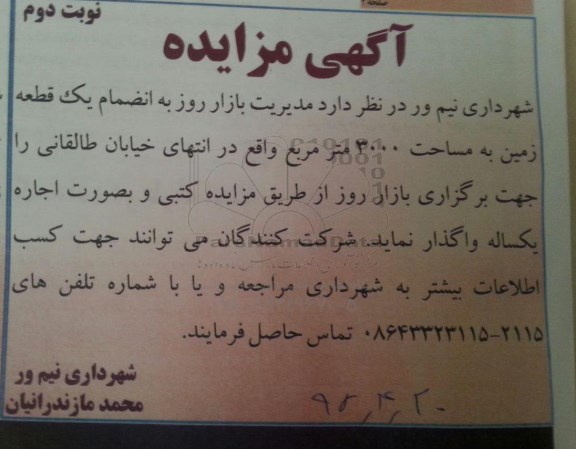 نوبت دوم
آگهی مزایده
شهرداری نیم ور در نظر دارد مدیریت بازار روز به انضمام یک قطعه
زمین به مساحت ۳۰۰۰ متر مربع واقع در انتهای خیابان طالقانی را
جهت برگزاری بازار روز از طریق مزایده کتبی و بصورت اجاره
یکساله واگذار نماید. شرکت کنندگان می توانند جهت کسب
اطلاعات بیشتر به شهرداری مراجعه و یا با شماره تلفن های
۲۱۱۵-۰۸۶۴۳۳۲۳۱۱۵ تماس حاصل فرمایند.
شهرداری نیم ور
محمد مازندرانیان